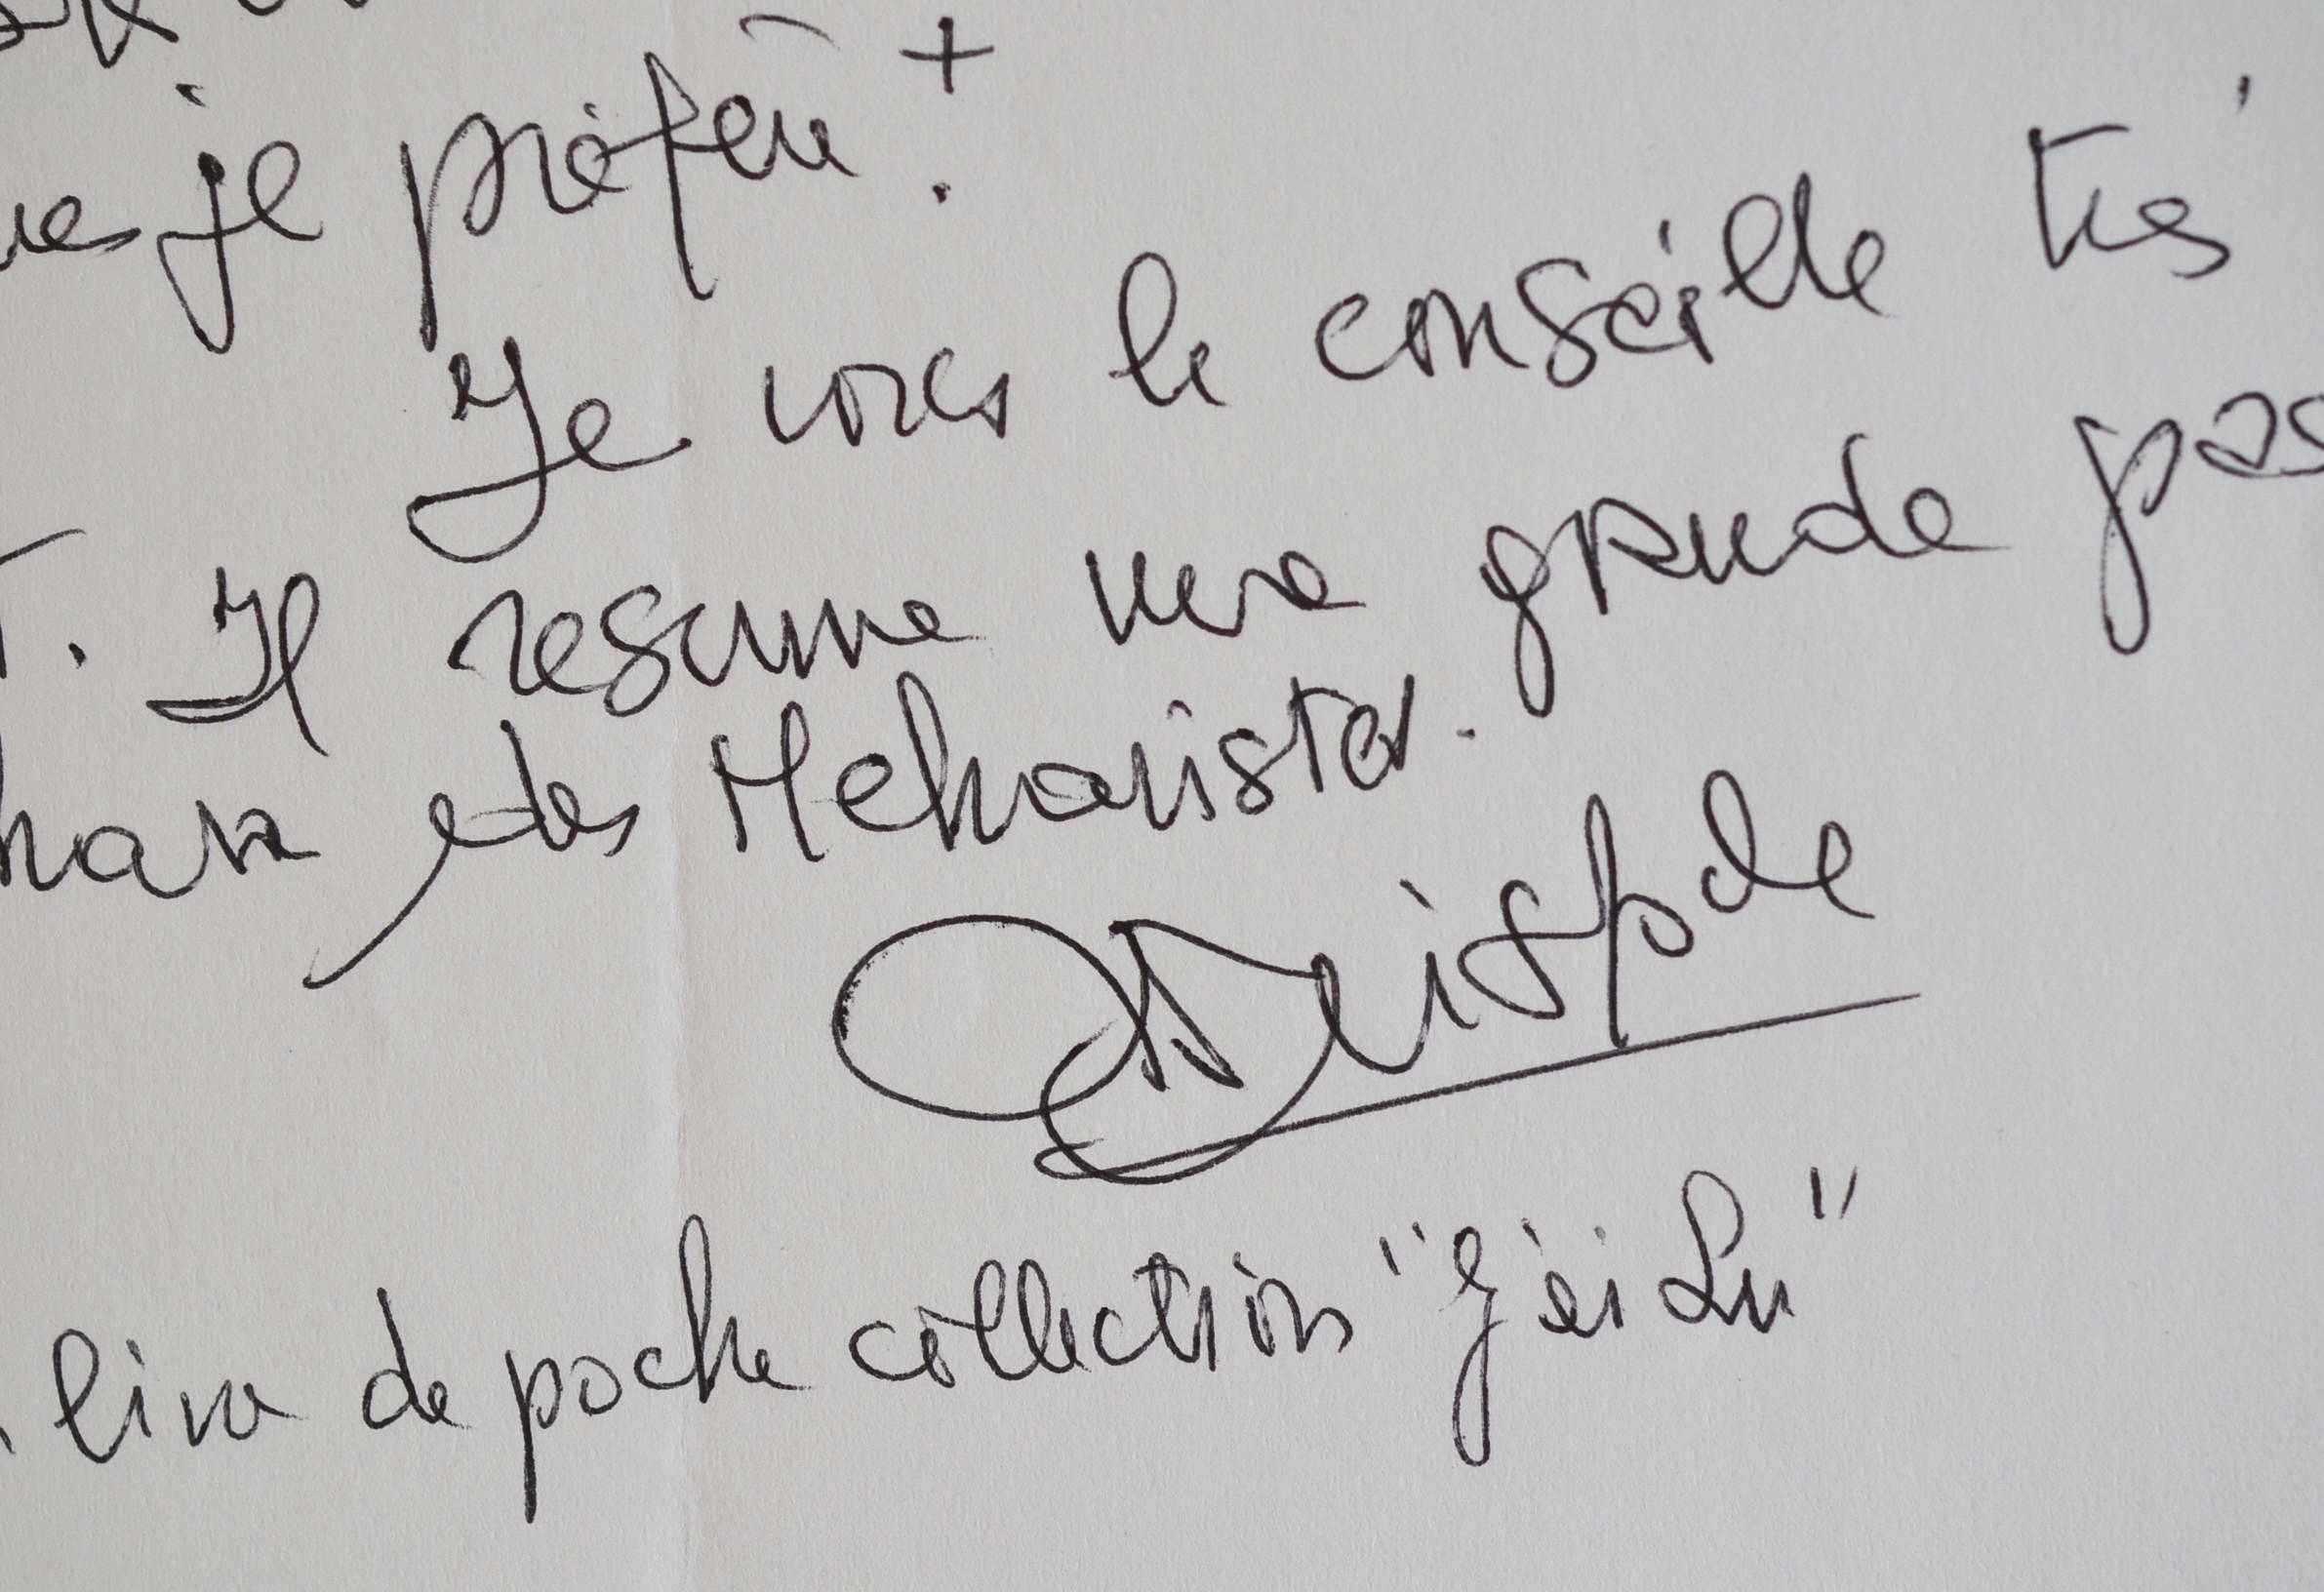 je préfère +.
Je vous le conseille très
Il résume une grande pas
des Mehariстes.
livre de poche collection "J'ai Lu"